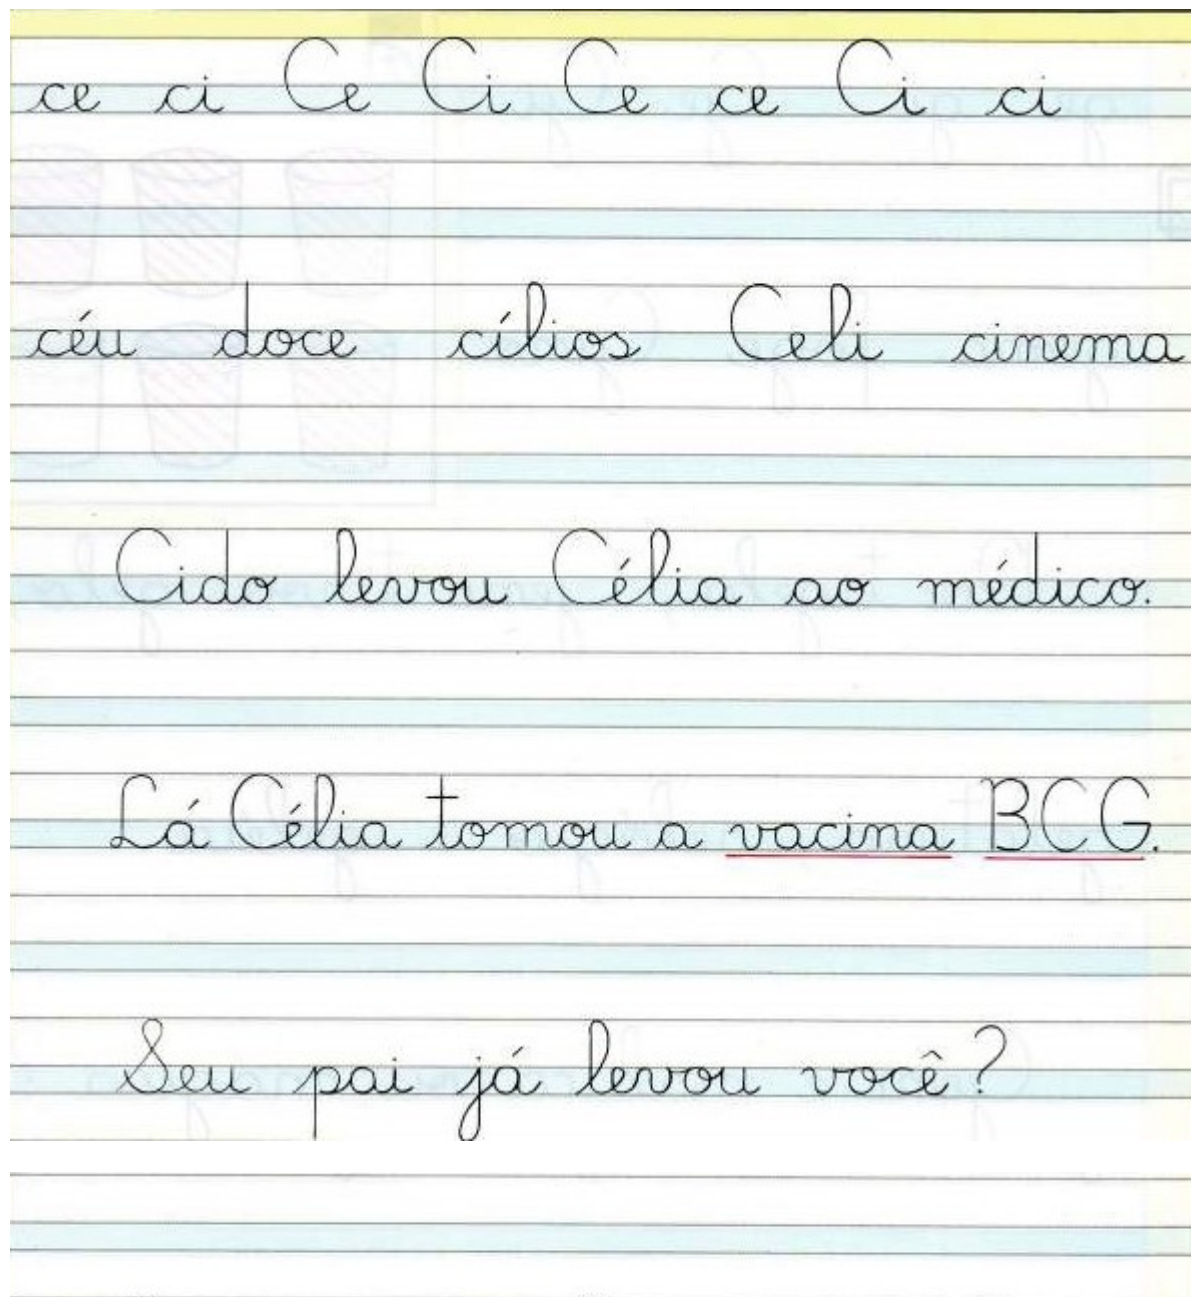 ce ci Ce Ci Ce ce Ci ci
céu doce cílios Celi cinema
Cido levou Célia ao médico.
Lá Célia tomou a vacina BCG.
Seu pai já levou você?